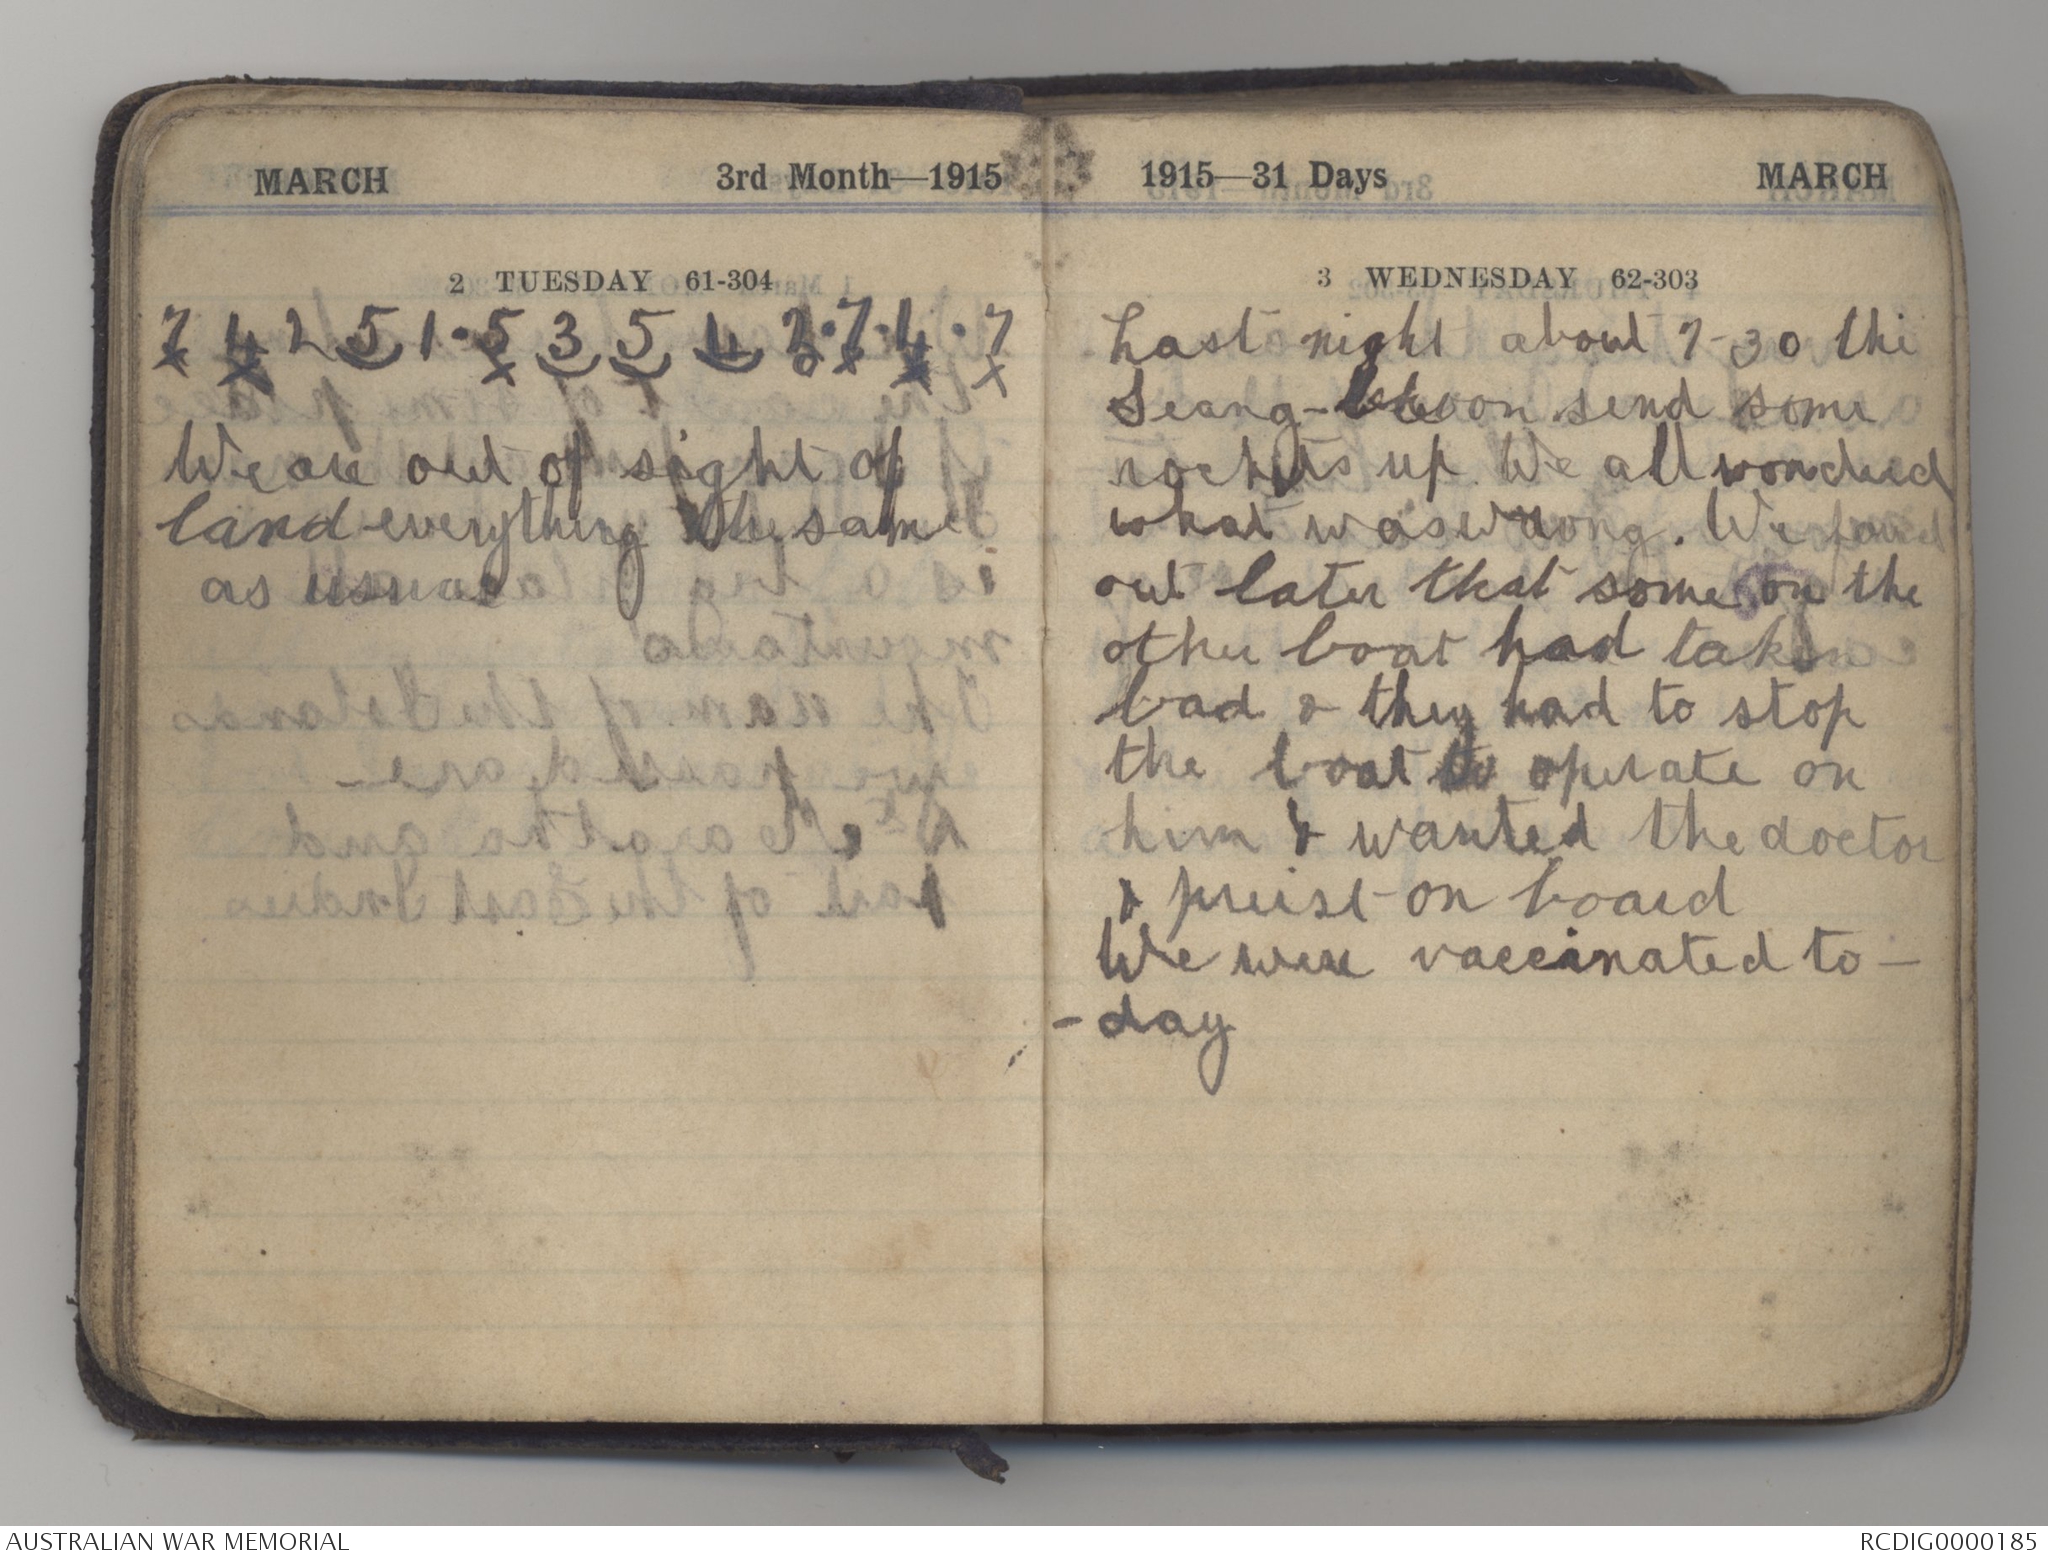 MARCH 3rd Month—1915
2 TUESDAY 61-304
7 4 2 5 1 · 5 3 5 4 2 · 7 · 4 · 7
x x x o x x x
We are out of sight of
land everything the same
as usual
1915—31 Days MARCH
3 WEDNESDAY 62-303
Last night about 7-30 the
Seang- send some
rockets up. We all wondered
what was wrong. We found
out later that some on the
other boat had taken
bad & they had to stop
the boat to operate on
him & wanted the doctor
& preist on board
We were vaccinated to-
-day
AUSTRALIAN WAR MEMORIAL RCDIG0000185